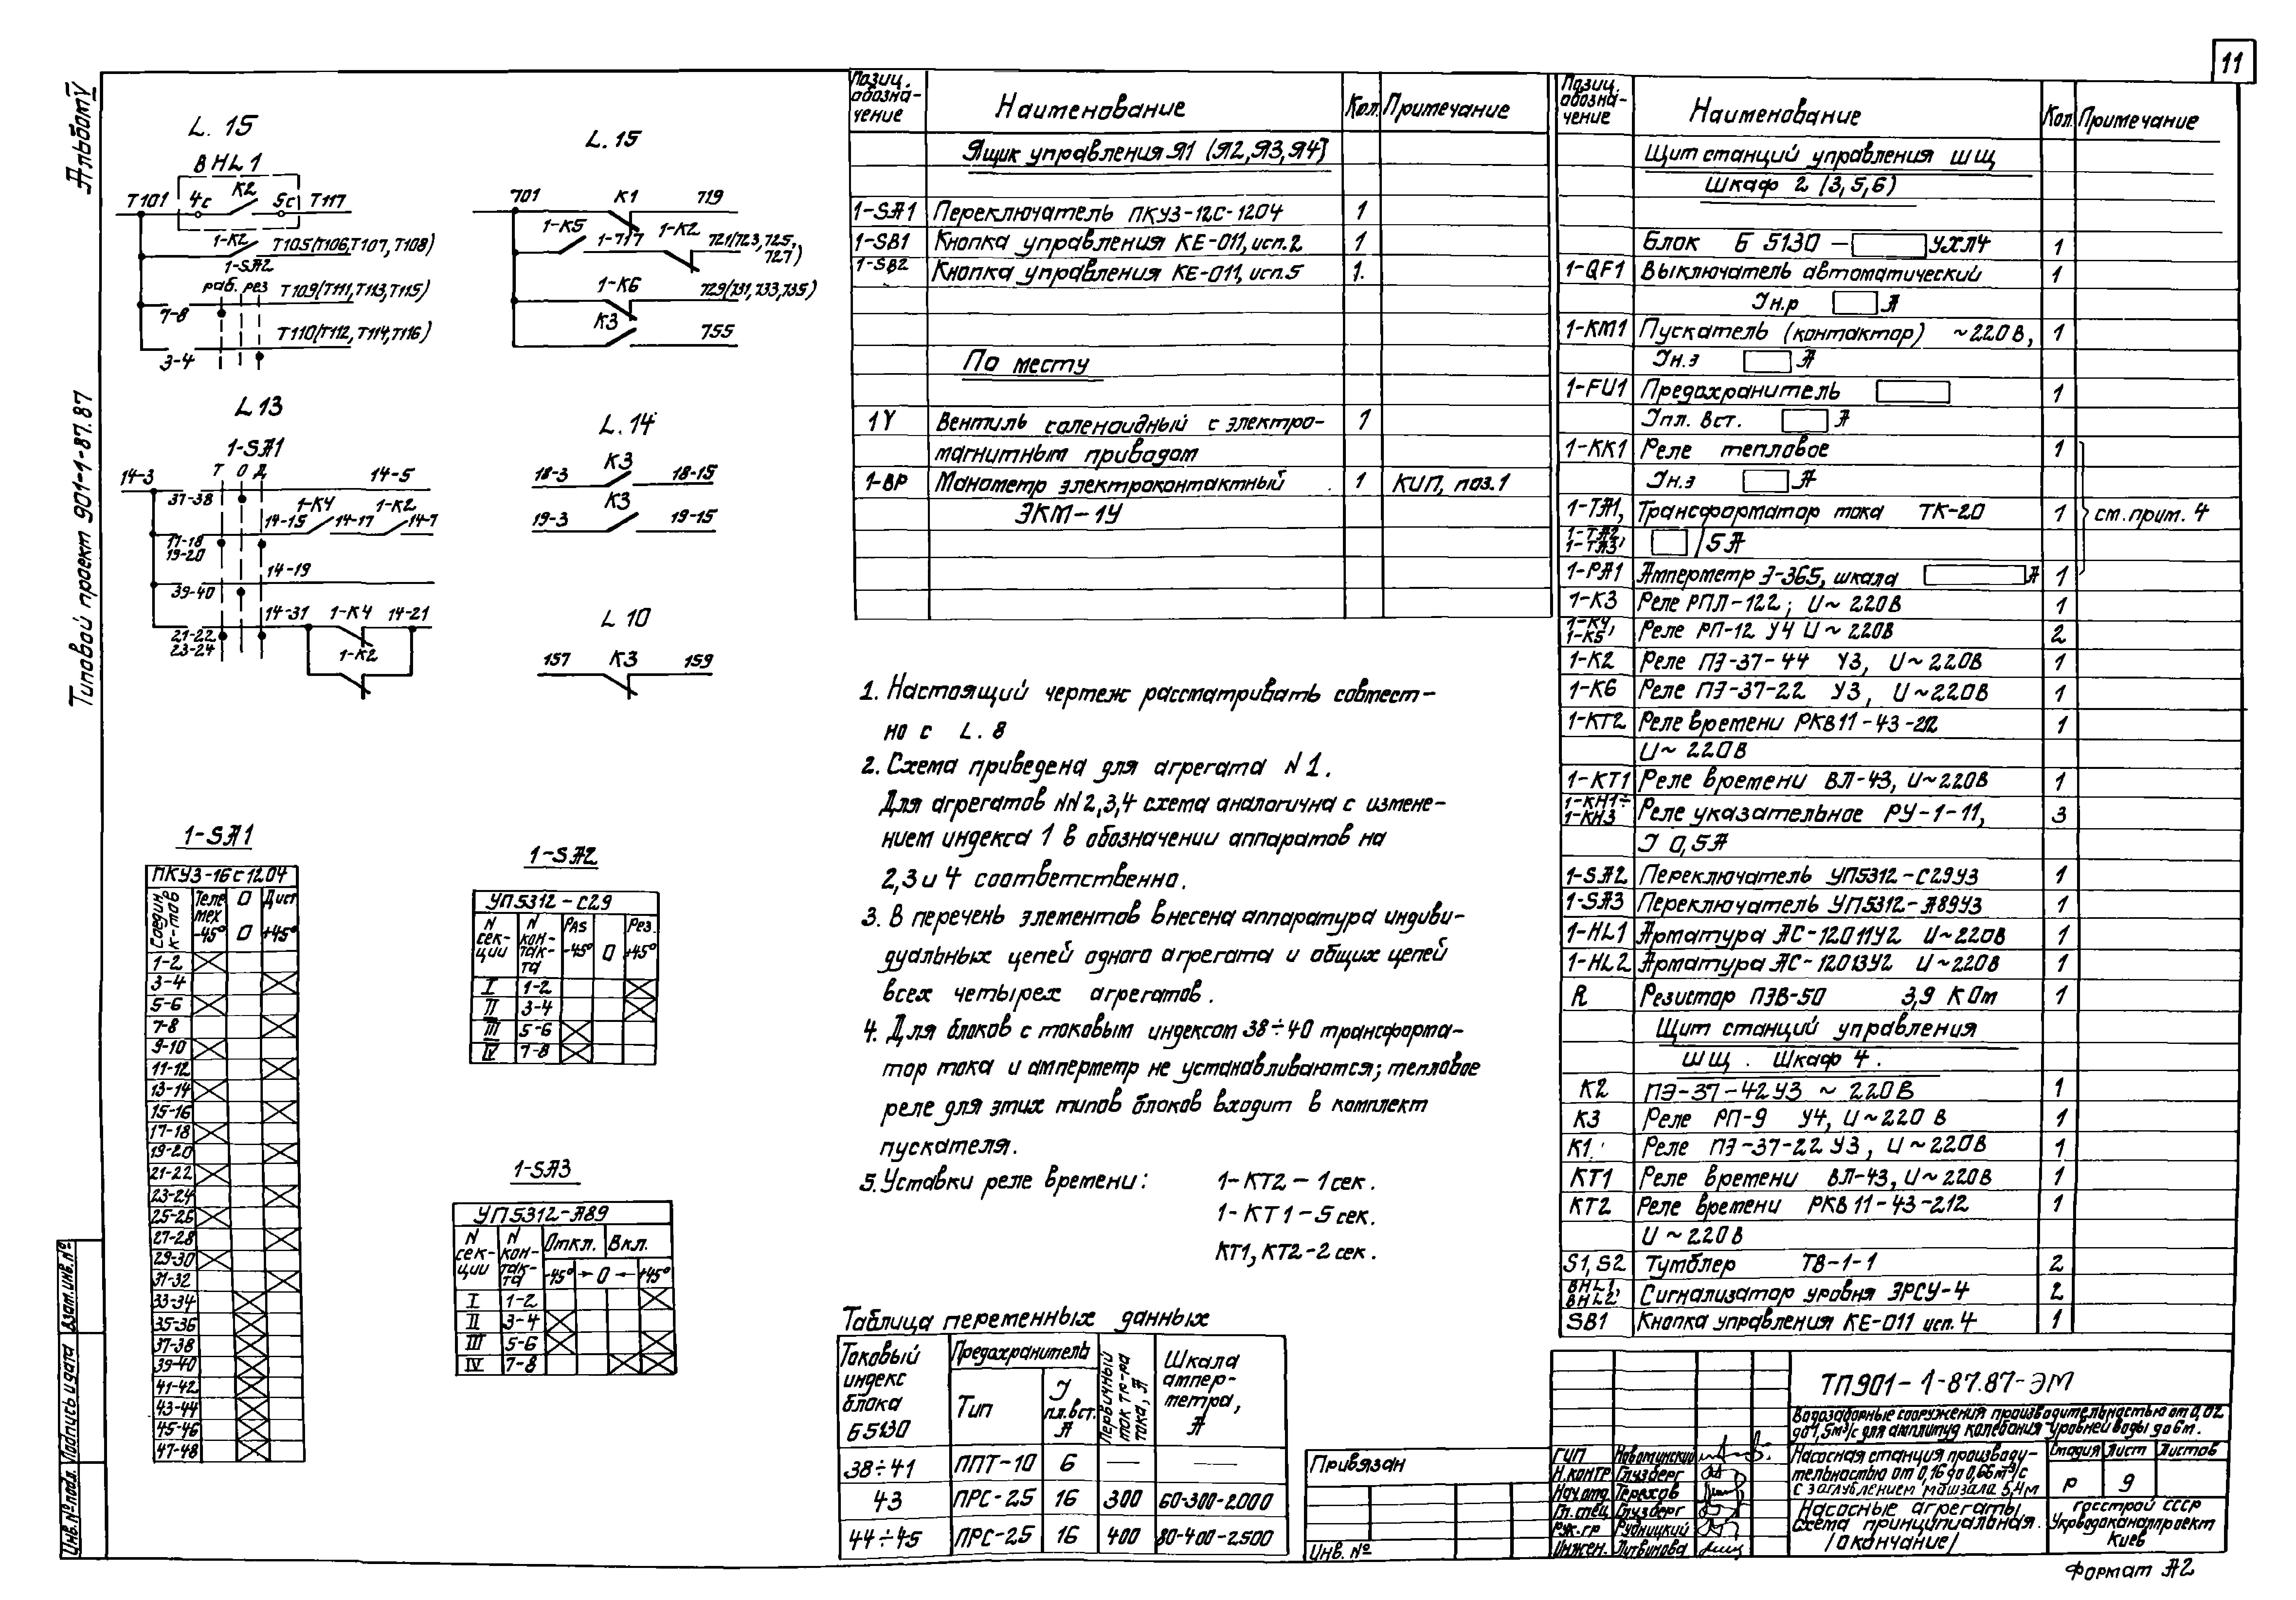 11
Альбом V
Типовой проект 901-1-87.87
L. 15
BHL1
T101 4с K2 5с T117
1-K2 T105(T106,T107,T108)
1-SA2
раб. рез T109(T111,T113,T115)
7-8
T110(T112,T114,T116)
3-4
L. 15
701 K1 719
1-K5 1-717 1-K2 721(723,725,
727)
1-K6 729(731,733,735)
K3 755
L 13
1-SA1
Т О Д
14-3 37-38 14-5
1-K4 1-K2
14-15 14-17 14-7
17-18
19-20
14-19
39-40
14-31 1-K4 14-21
21-22
23-24
1-K2
L. 14
18-3 K3 18-15
19-3 K3 19-15
L 10
157 K3 159
1-SA1
ПКУ3-16С1204
Соедин. к-тов
Теле мех -45° 0 0 Дист +45°
1-2
3-4
5-6
7-8
9-10
11-12
13-14
15-16
17-18
19-20
21-22
23-24
25-26
27-28
29-30
31-32
33-34
35-36
37-38
39-40
41-42
43-44
45-46
47-48
1-SA2
УП5312-С29
N секции N контакта Раб -45° 0 Рез. +45°
I 1-2
II 3-4
III 5-6
IV 7-8
1-SA3
УП5312-А89
N секции N контакта Откл. Вкл.
-45° → 0 ← +45°
I 1-2
II 3-4
III 5-6
IV 7-8
Позиц. обозна-чение Наименование Кол. Примечание
Ящик управления Я1 (Я2,Я3,Я4)
1-SA1 Переключатель ПКУ3-12С-1204 1
1-SB1 Кнопка управления КЕ-011, исп.2 1
1-SB2 Кнопка управления КЕ-011, исп.5 1.
По месту
1Y Вентиль соленоидный с электро- 1
магнитным приводом
1-BP Манометр электроконтактный 1 КИП, поз.1
ЭКМ-1У
1. Настоящий чертеж рассматривать совмест-
но с L. 8
2. Схема приведена для агрегата N 1.
Для агрегатов NN 2,3,4 схема аналогична с измене-
нием индекса 1 в обозначении аппаратов на
2,3 и 4 соответственно.
3. В перечень элементов внесена аппаратура индиви-
дуальных цепей одного агрегата и общих цепей
всех четырех агрегатов.
4. Для блоков с токовым индексом 38÷40 трансформа-
тор тока и амперметр не устанавливаются; тепловое
реле для этих типов блоков входит в комплект
пускателя.
5. Уставки реле времени: 1-КТ2 - 1 сек.
1-КТ1-5 сек.
КТ1, КТ2-2 сек.
Таблица переменных данных
Токовый индекс блока Б5130 Предохранитель Тип I пл.вст. А Первичный ток тр-ра тока, А Шкала ампер-метра, А
38÷41 ППТ-10 6 — —
43 ПРС-25 16 300 60-300-2000
44÷45 ПРС-25 16 400 80-400-2500
Позиц. обозна-чение Наименование Кол. Примечание
Щит станций управления ШЩ
Шкаф 2 (3,5,6)
Блок Б 5130 - УХЛ4 1
1-QF1 Выключатель автоматический 1
Iн.р А
1-KM1 Пускатель (контактор) ~220В, 1
Iн.э А
1-FU1 Предохранитель 1
Iпл. вст. А
1-KK1 Реле тепловое 1
Iн.э А
1-TA1, Трансформатор тока ТК-20 1 см. прим. 4
1-TA2, 1-TA3, /5А
1-PA1 Амперметр Э-365, шкала А 1
1-K3 Реле РПЛ-122; U~220В 1
1-K4, 1-K5, Реле РП-12 У4 U~220В 2
1-K2 Реле ПЭ-37-44 У3, U~220В 1
1-K6 Реле ПЭ-37-22 У3, U~220В 1
1-KT2 Реле времени РКВ11-43-212 1
U~220В
1-KT1 Реле времени ВЛ-43, U~220В 1
1-KH1÷ 1-KH3 Реле указательное РУ-1-11, 3
I 0,5А
1-SA2 Переключатель УП5312-С29У3 1
1-SA3 Переключатель УП5312-А89У3 1
1-HL1 Арматура АС-12011У2 U~220В 1
1-HL2 Арматура АС-12013У2 U~220В 1
R Резистор ПЭВ-50 3,9 КОм 1
Щит станций управления
ШЩ. Шкаф 4.
K2 ПЭ-37-42У3 ~ 220В 1
K3 Реле РП-9 У4, U~220 В 1
K1 Реле ПЭ-37-22 У3, U~220В 1
KT1 Реле времени ВЛ-43, U~220В 1
KT2 Реле времени РКВ 11-43-212 1
U~220В
S1, S2 Тумблер ТВ-1-1 2
BHL1, BHL2, Сигнализатор уровня ЭРСУ-4 2
SB1 Кнопка управления КЕ-011 исп. 4 1
ТП901-1-87.87-ЭМ
Водозаборные сооружения производительностью от 0,02
до 1,5м³/с для амплитуд колебания уровней воды до 6м.
ГИП Новоминский
Н.контр Глузберг
Нач.отд Терехов
Гл.спец Глузберг
Рук.гр Рудницкий
Инжен. Литвинова
Насосная станция производи-
тельностью от 0,16 до 0,66м³/с
с заглублением машзала 5,4м
Стадия Лист Листов
Р 9
Насосные агрегаты
Схема принципиальная.
/окончание/
Госстрой СССР
Укрводоканалпроект
Киев
Привязан
Инв. №
Формат А2
Взам.инв.№
Подпись и дата
Инв.№ подл.